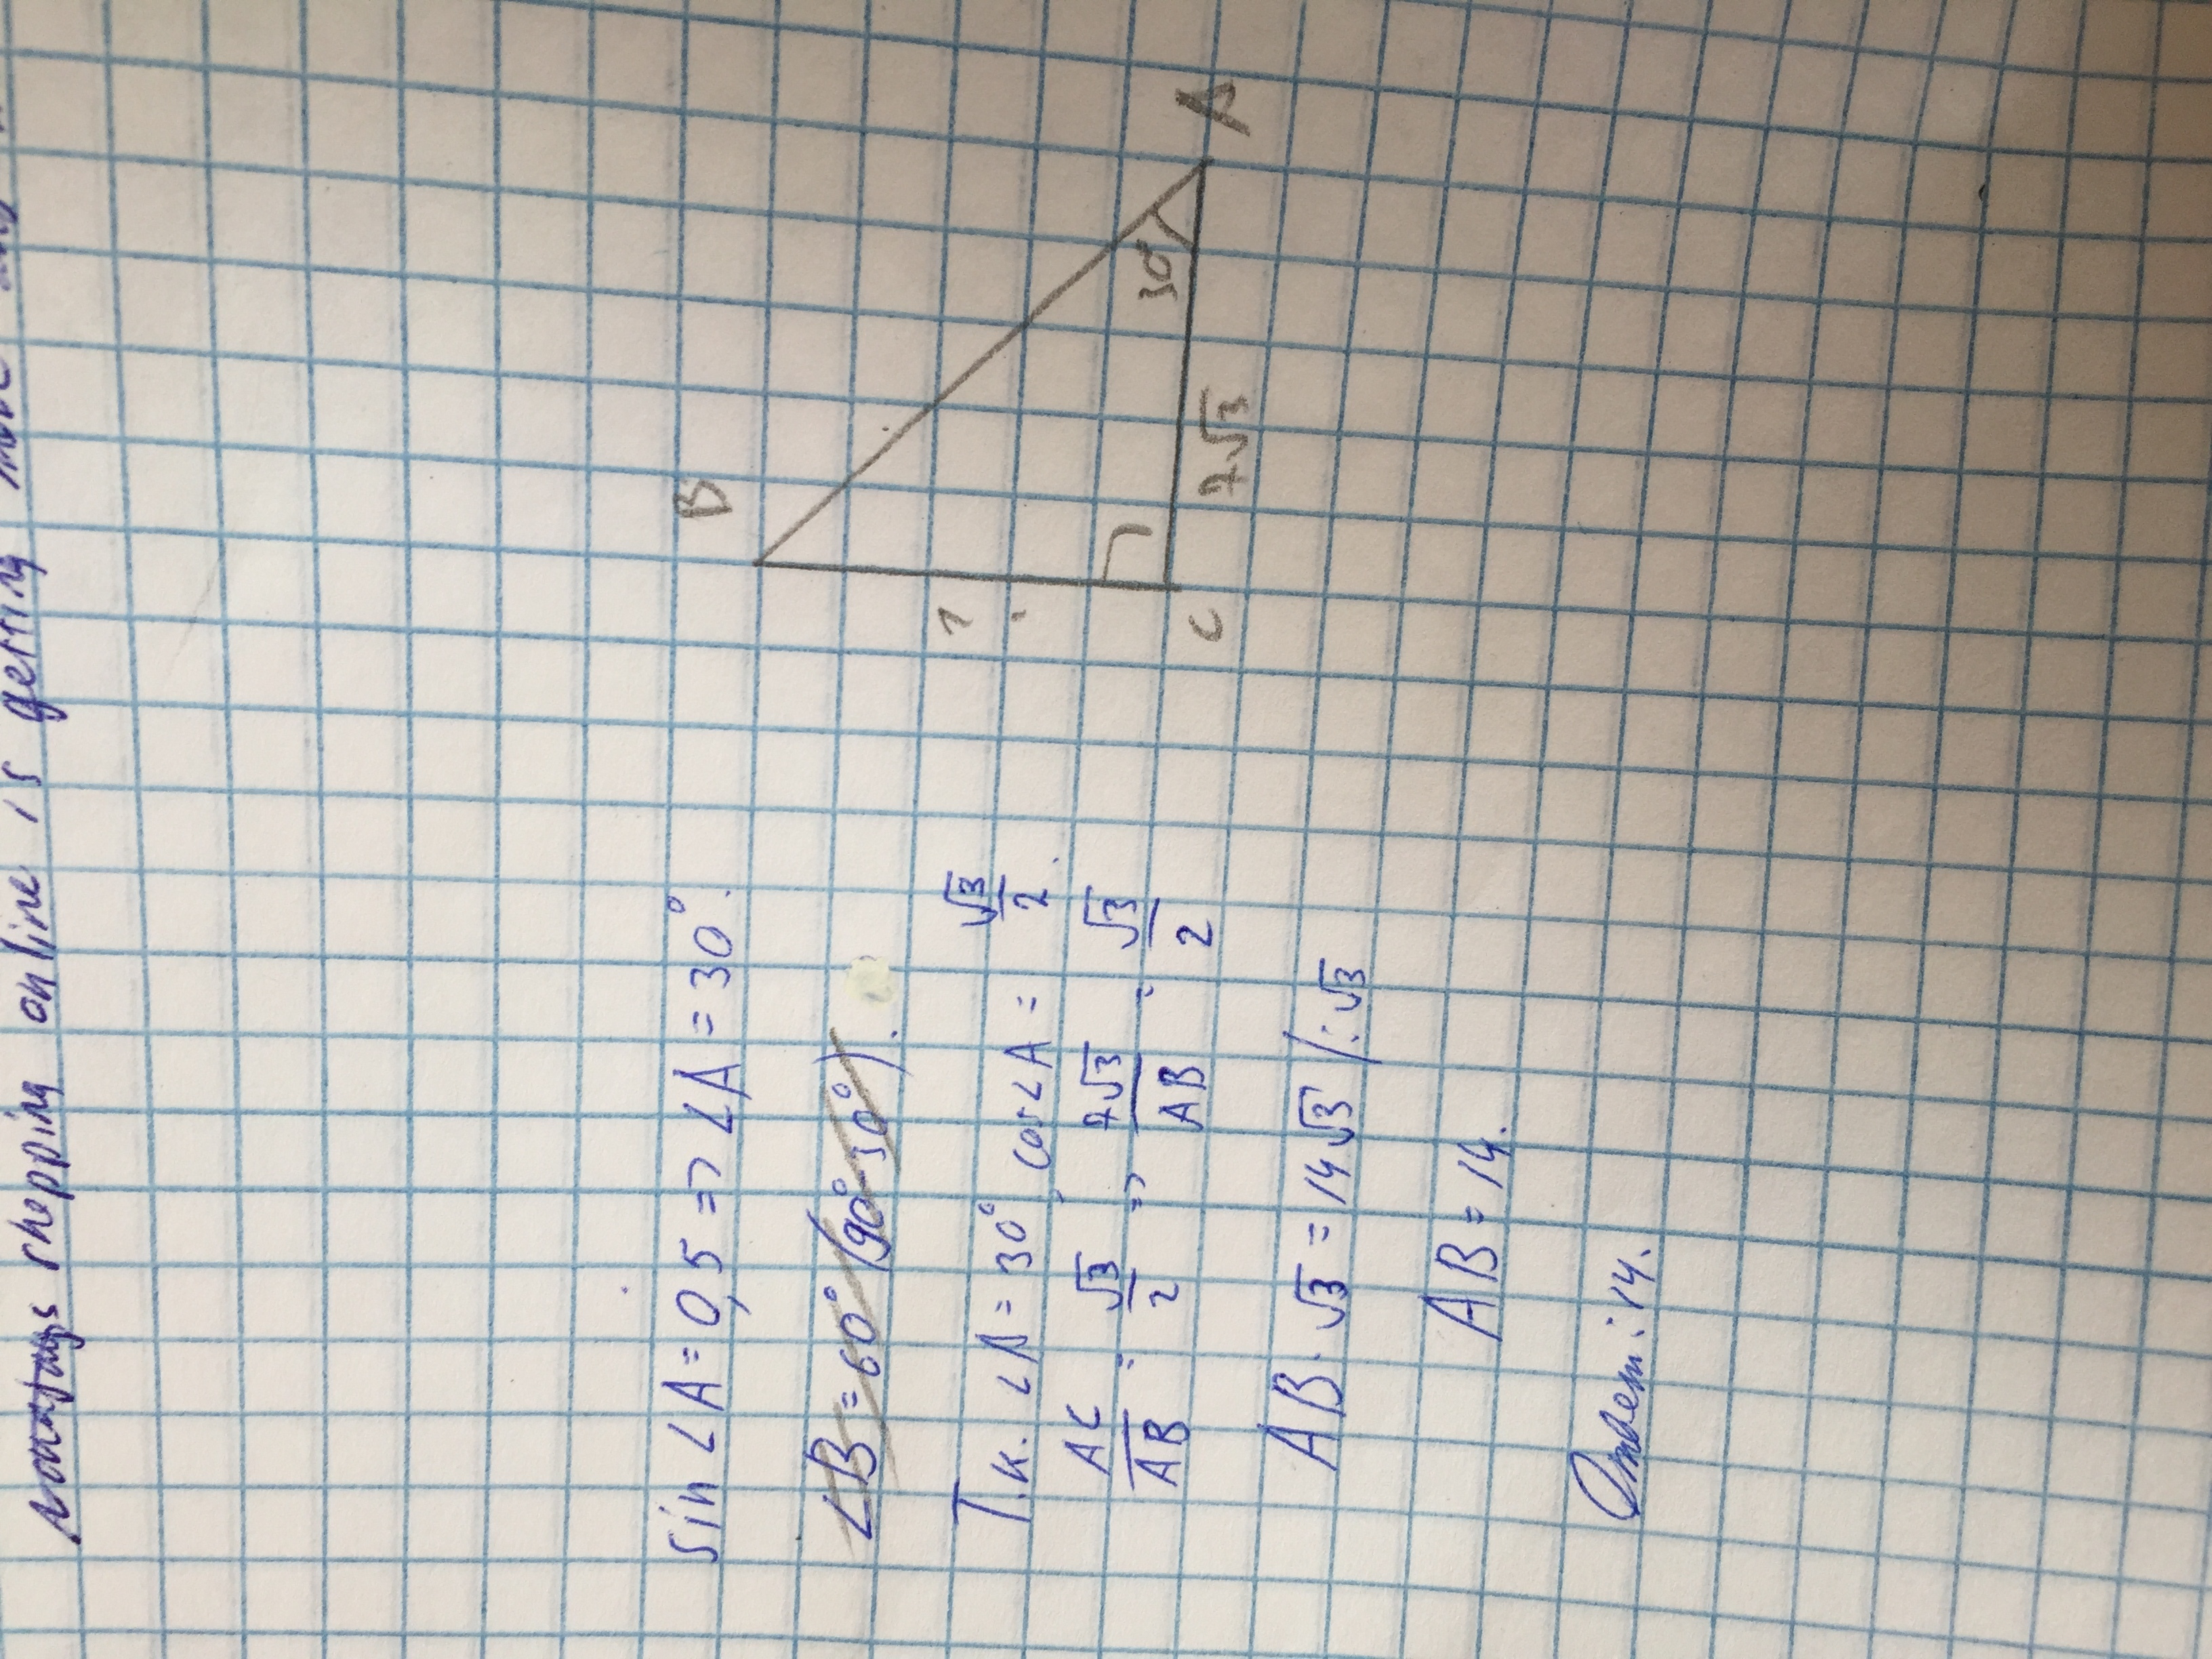 nowadays shopping online is getting more and
sin ∠A = 0,5 => ∠A = 30°.
∠B = 60° (90°-30°).
Т.к. ∠A = 30°, cos∠A = √3/2.
AC/AB = √3/2 => 7√3/AB = √3/2
AB · √3 = 14√3 /:√3
AB = 14.
Ответ: 14.
B
?
C
7√3
30°
A